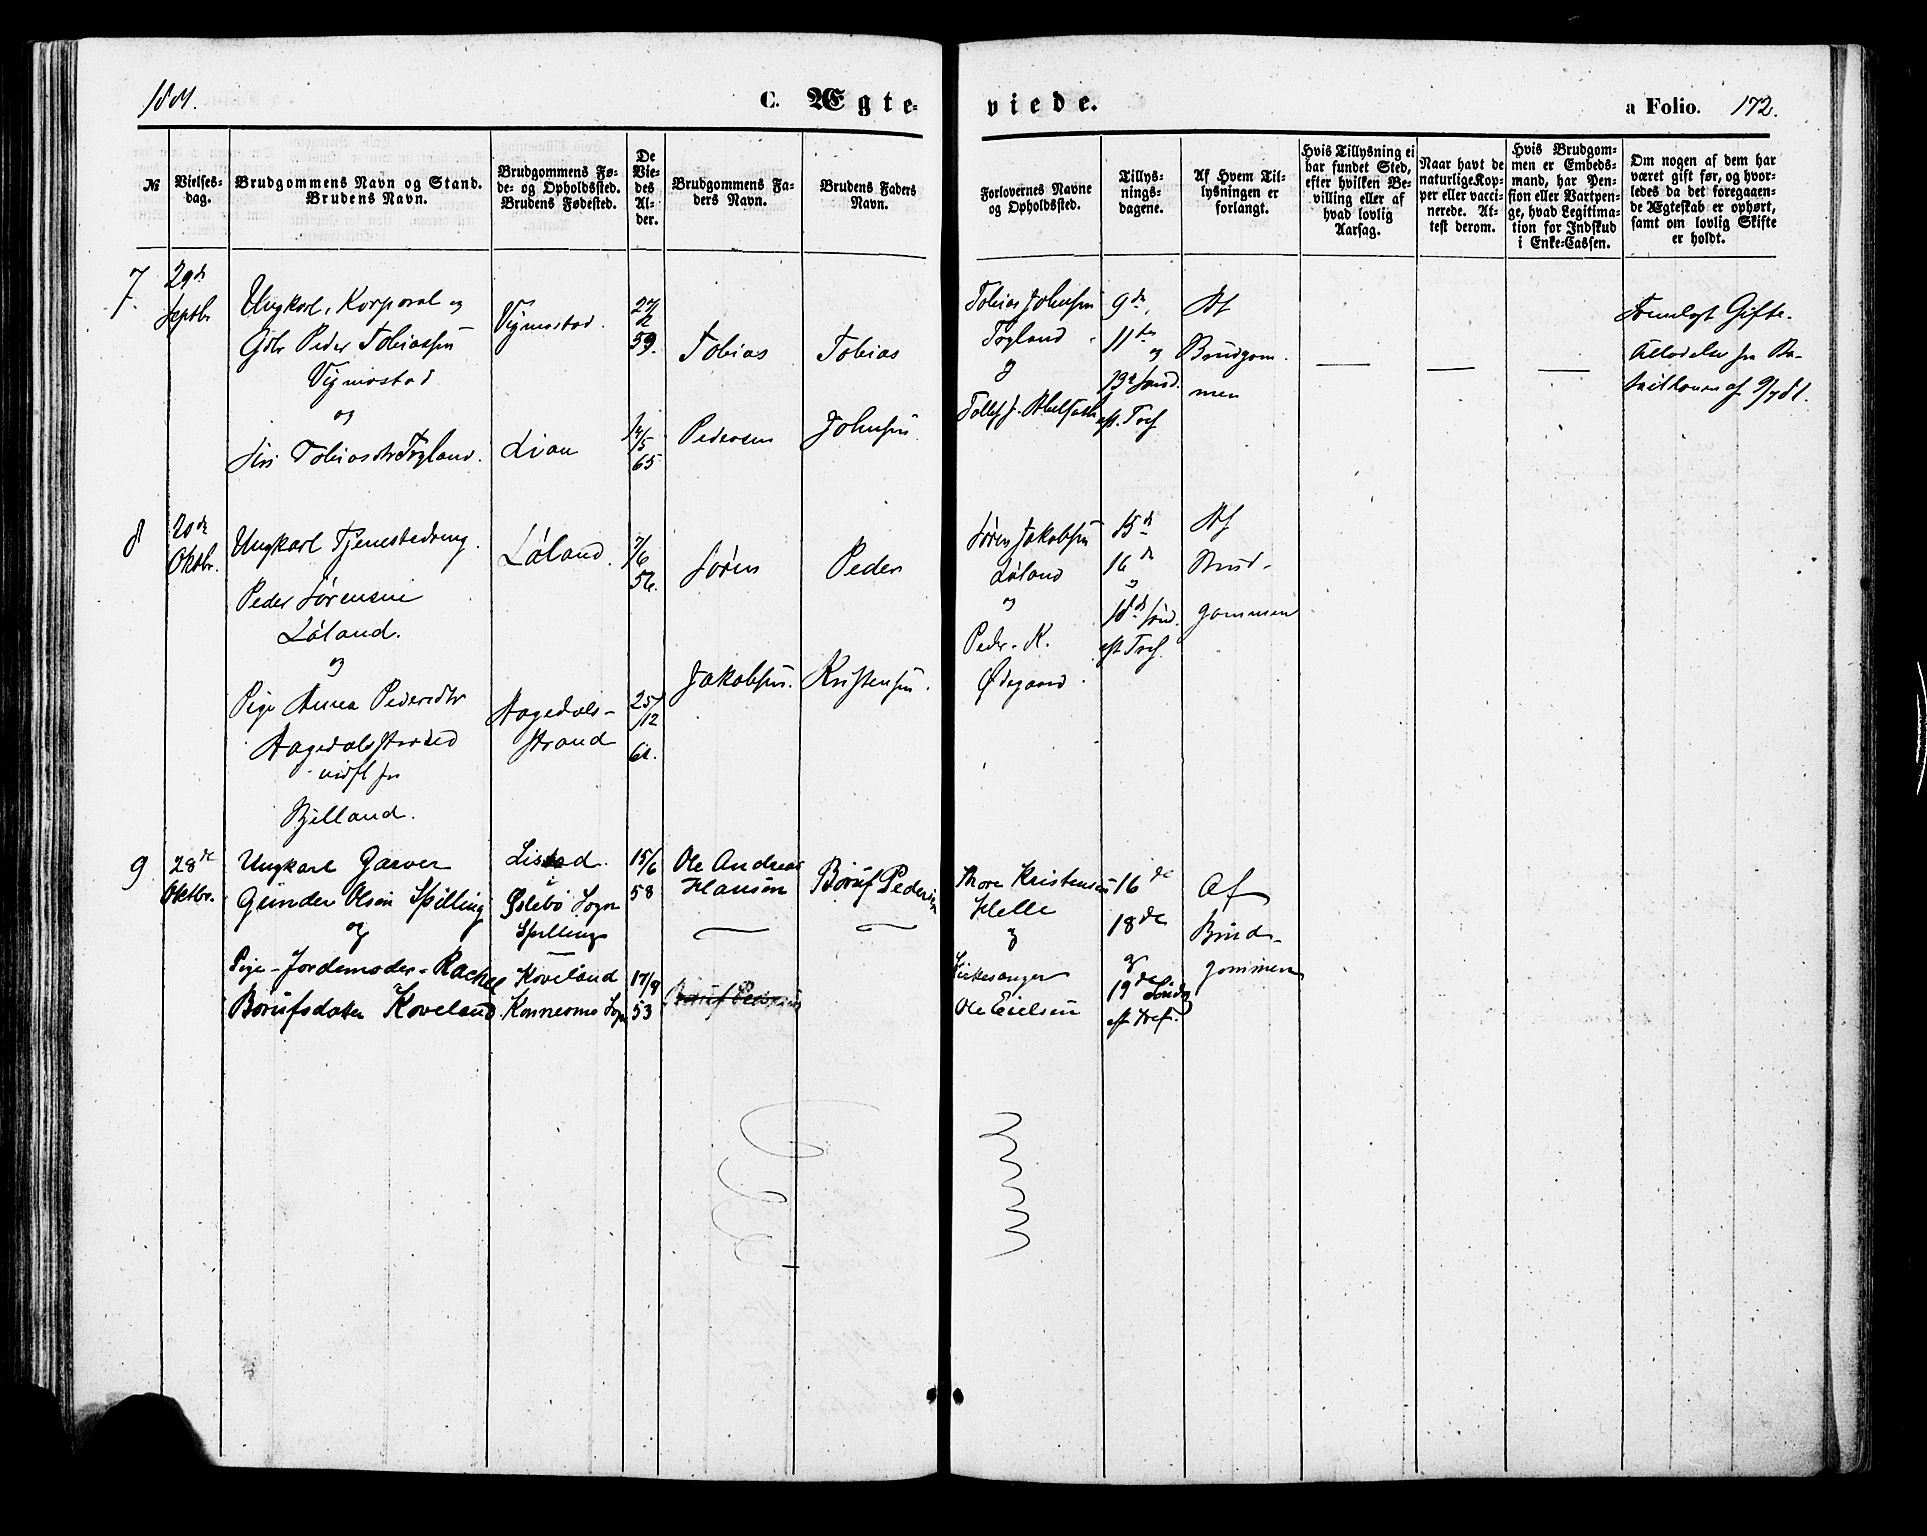 1881.
C. Ægte-
viede.
a Folio. 172.
№
Vielses-
dag.
Brudgommens Navn og Stand.
Brudens Navn.
Brudgommens Fø-
de- og Opholdssted.
Brudens Fødested.
De
Vie-
des
Al-
der.
Brudgommens Fa-
ders Navn.
Brudens Faders
Navn.
Forlovernes Navne
og Opholdssted.
Tillys-
nings-
dagene.
Af Hvem Til-
lysningen er
forlangt.
Hvis Tillysning ei
har fundet Sted,
efter hvilken Be-
villing eller af
hvad lovlig
Aarsag.
Naar havt de
naturlige Kop-
per eller vacci-
nerede. At-
test derom.
Hvis Brudgom-
men er Embeds-
mand, har Pen-
sion eller Vartpen-
ge, hvad Legitima-
tion for Indskud
i Enke-Cassen.
Om nogen af dem har
været gift før, og hvor-
ledes da det foregaaen-
de Ægteskab er ophørt,
samt om lovlig Skifte
er holdt.
7.
29de
Septbr
Ungkarl, Korporal og
Gdbr Peder Tobiassen
Vigmostad
og
Siri Tobiasdtr Fogland.
Vigmostad.
Lian
27/2
59.
14/5
65
Tobias
Pedersen
Tobias
Johnsen
Tobias Johnsen
Fogland
og
9de,
11te og
13de Sønd.
eft. Tref.
Af
Brudgom-
men
Fremlagt Gifte-
8
20de
Oktbr.
Ungkarl Tjenestedreng
Peder Sørensen
Løland.
og
Pige Anna Pedersdtr
Aagedalsstrand
indfl fra
Bjelland.
Løland.
Aagedals-
strand
7/6
56.
25/12
61.
Søren
Jakobsen.
Peder
Kristensen.
Søren Jakobsen
Løland
og
Peder. K.
Ødegaard.
15de
16de
og
18de Sønd.
eft Tref.
Af
Brud-
gommen
9
28de
Oktbr.
Ungkarl Garver
Gunder Olsen Spilling
og
Pige-Jordemoder-Rachel
Borufsdatter Koveland
Øslebø Sogn
Spilling
Koveland
15/6
58
17/9
53
Ole Andreas
Hansen
Boruf Pedersen
Boruf Pedersen
Thore Kristensen
Helle
og
Kirkesanger
Ole Eielsen
16de
18de
og
19de Søndg
eft Tref.
Af
Brud-
gommen